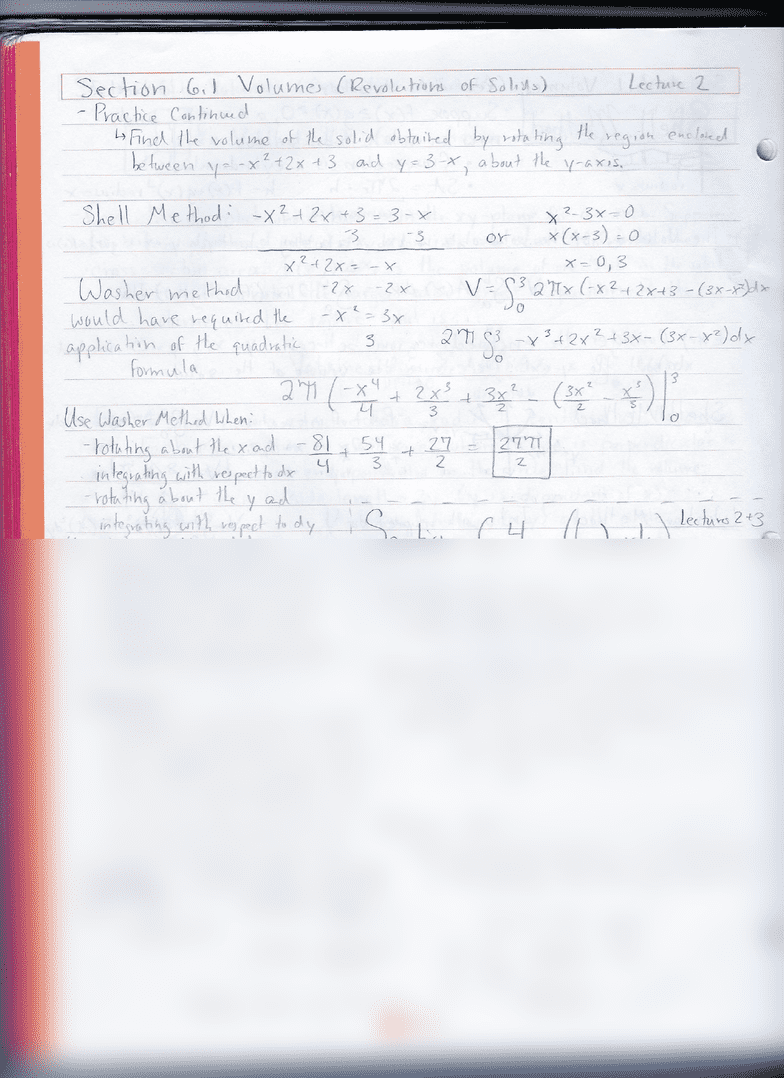 Section 6.1 Volumes (Revolutions of Solids) Lecture 2
- Practice Continued
↳ Find the volume of the solid obtained by rotating the region enclosed
between y = -x² + 2x + 3 and y = 3 - x, about the y-axis.
Shell Method: -x² + 2x + 3 = 3 - x
-3 -3
x² + 2x = -x
-2x -2x
-x² = 3x
3
or
x² - 3x = 0
x(x-3) = 0
x = 0, 3
Washer method
would have required the
application of the quadratic
formula
V = ∫₀³ 2πx (-x² + 2x + 3 - (3x - x²) dx
2π ∫₀³ -x³ + 2x² + 3x - (3x - x²) dx
2π (-x⁴/4 + 2x³/3 + 3x²/2 - (3x²/2 - x³/3) |₀³
-81/4 + 54/3 + 27/2 = 27π/2
Use Washer Method When:
- rotating about the x and
integrating with respect to dx
- rotating about the y ad
integrating with respect to dy
Lectures 2+3